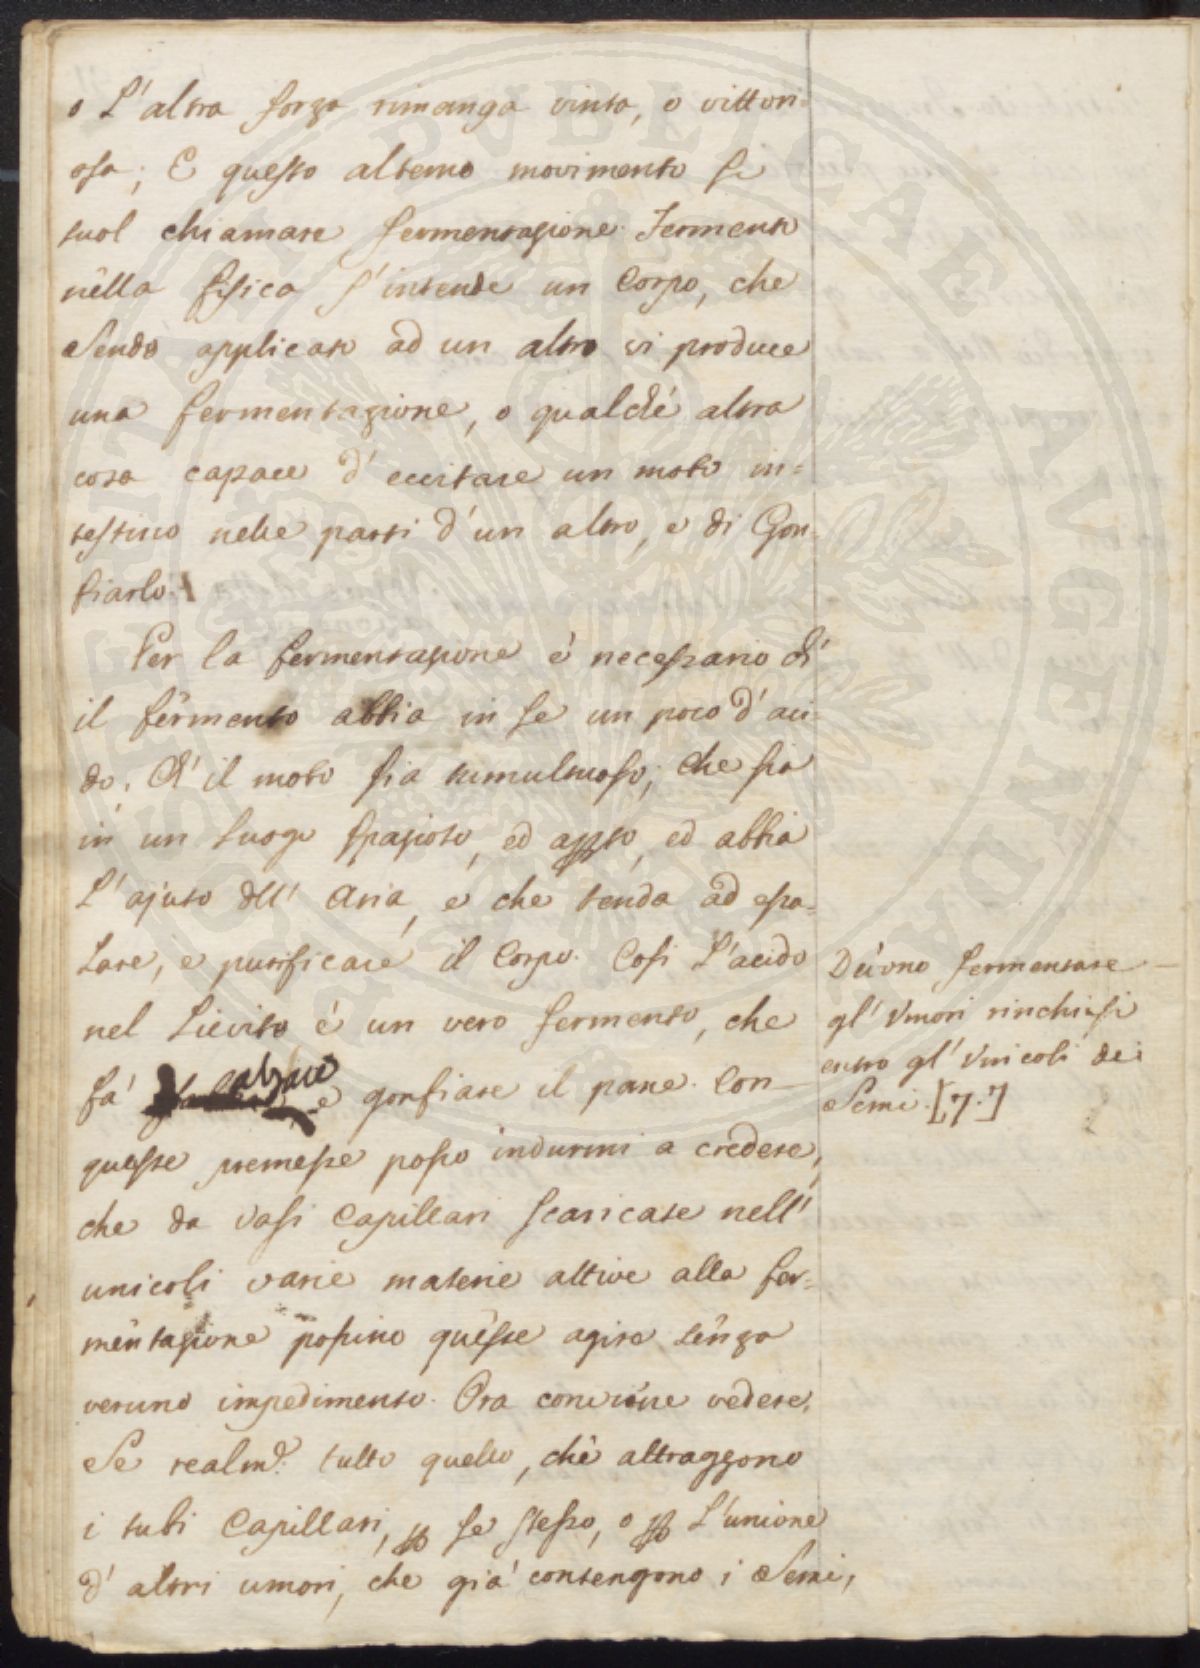 o L'altra forza rimanga vinta, o vittori=
osa; E questo alterno movimento si
suol chiamare fermentazione. Fermento
nella fisica s'intende un Corpo, che
sendo applicato ad un altro vi produce
una fermentazione, o qualche altra
cosa capace d'eccitare un moto in=
testino nelle parti d'un altro, e di Gon=
fiarlo.
Per la fermentazione è necessario ch'
il fermento abbia in se un poco d'aci=
do. Ch' il moto sia tumultuoso; che sia
in un luogo spazioso, ed apto, ed abbia
L'ajuto dell' Aria, e che tenda ad esa=
lare, e purificare il Corpo. Cosi L'acido
nel Lievito è un vero fermento, che
fà alzare e gonfiare il pane. Con
queste premesse posso indurmi a credere,
che da vasi Capillari scaricate nell'
unicoli varie materie attive alla fer=
mentazione possino queste agire senza
veruno impedimento. Ora conviene vedere,
Se realm.e tutto quello, che attraggono
i tubi Capillari, p se stesso, o p L'unione
d' altri umori, che già contengono i Semi,
Devono fermentare
gl' Umori rinchiusi
entro gl' Unicoli dei
Semi. [7.]
PVBLICAE AVGENDAE